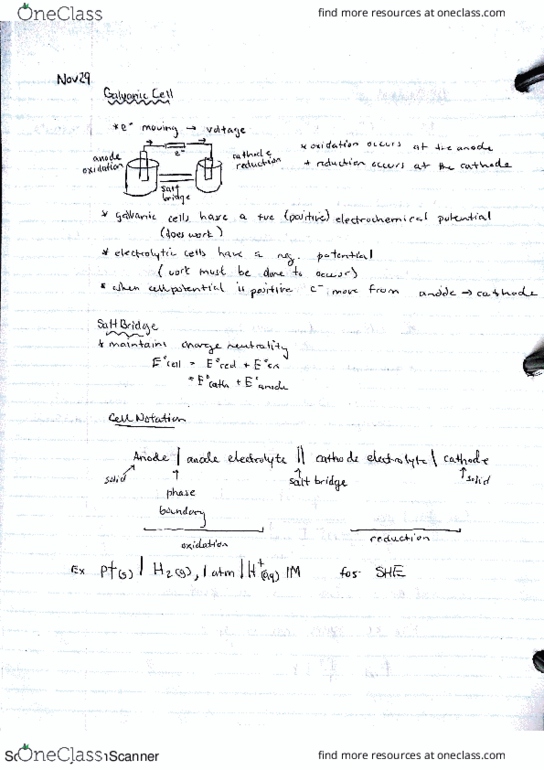 OneClass
find more resources at oneclass.com
Nov 29
Galvanic Cell
*e⁻ moving → voltage
anode
oxidation
e⁻
cathode
reduction
salt
bridge
* oxidation occurs at the anode
+ reduction occurs at the cathode
* galvanic cells have a +ve (positive) electrochemical potential
(does work)
* electrolytic cells have a neg. potential
(work must be done to occur)
* when cell potential is positive e⁻ move from anode → cathode
Salt Bridge
* maintains charge neutrality
E°cell = E°red + E°ox
= E°cath + E°anode
Cell Notation
Anode | anode electrolyte || cathode electrolyte | cathode
solid
phase
boundary
salt bridge
solid
oxidation
reduction
Ex Pt(s) | H₂(g), 1 atm | H⁺(aq) 1M for SHE
OneClass
Scanner
find more resources at oneclass.com